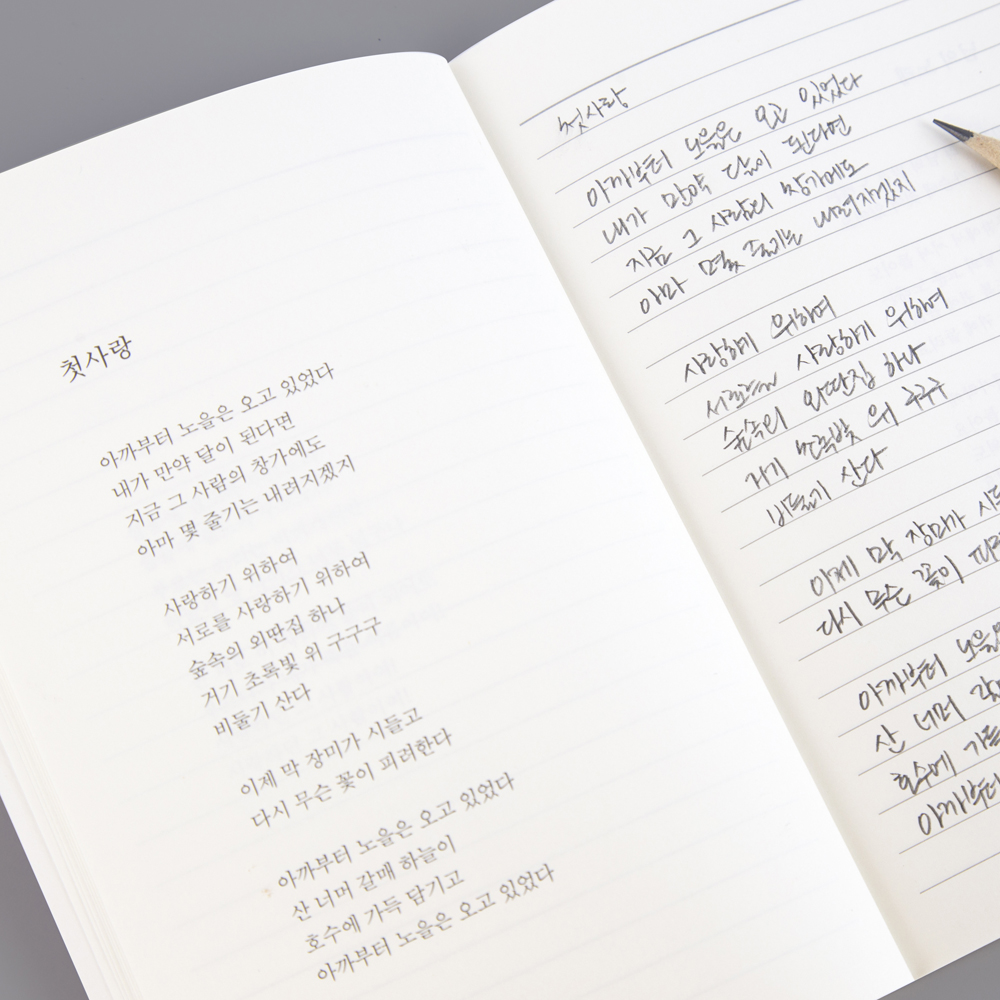 첫사랑
아까부터 노을은 오고 있었다
내가 만약 달이 된다면
지금 그 사람의 창가에도
아마 몇 줄기는 내려지겠지
사랑하기 위하여
서로를 사랑하기 위하여
숲속의 외딴집 하나
거기 초록빛 위 구구구
비둘기 산다
이제 막 장미가 시들고
다시 무슨 꽃이 피려한다
아까부터 노을은 오고 있었다
산 너머 갈매 하늘이
호수에 가득 담기고
아까부터 노을은 오고 있었다
첫사랑
아까부터 노을은 오고 있었다
내가 만약 달이 된다면
지금 그 사람의 창가에도
아마 몇 줄기는 내려지겠지
사랑하기 위하여
서로를 사랑하기 위하여
숲속의 외딴집 하나
거기 초록빛 위 구구구
비둘기 산다
이제 막 장미가
다시 무슨 꽃이
아까부터
산 너머
호수에
아까부터